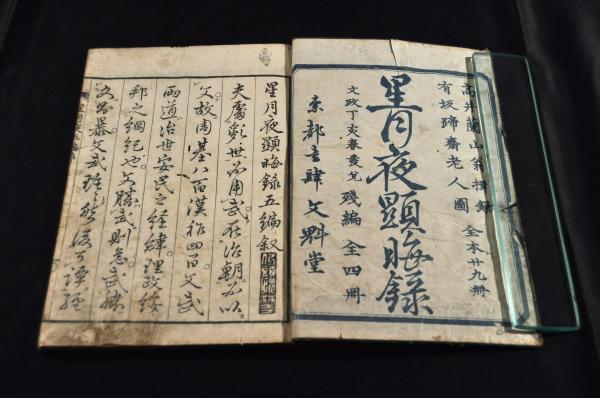 高井蘭山翁揖錄 全本廿九冊
有坂蹄齋老人圖
星月夜顕晦録
文政丁亥春發兌 殘編 全四冊
京都書肆文㪺堂
星月夜顕晦録五編叙
夫處乱世者用武在治朝者以
文故周基八百漢祚四百文武
両道治世安民之経緯理政綏
邦之綱紀也文勝武則怠武勝
文則暴文武雖然後可譚経